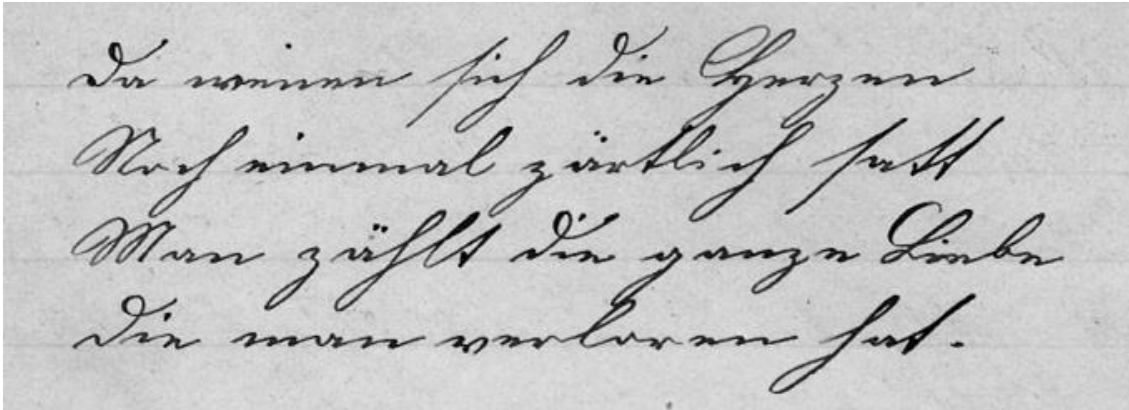 Da weinen sich die Herzen
Noch einmal zärtlich satt
Man zählt die ganze Liebe
Die man verloren hat.